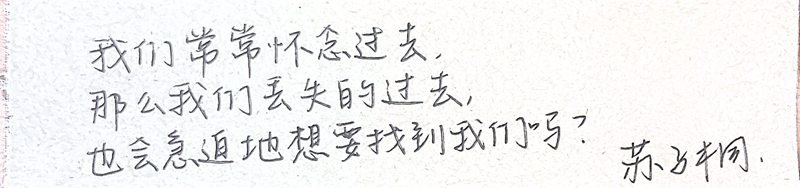 我们常常怀念过去.
那么我们丢失的过去,
也会急迫地想要找到我们吗?
苏